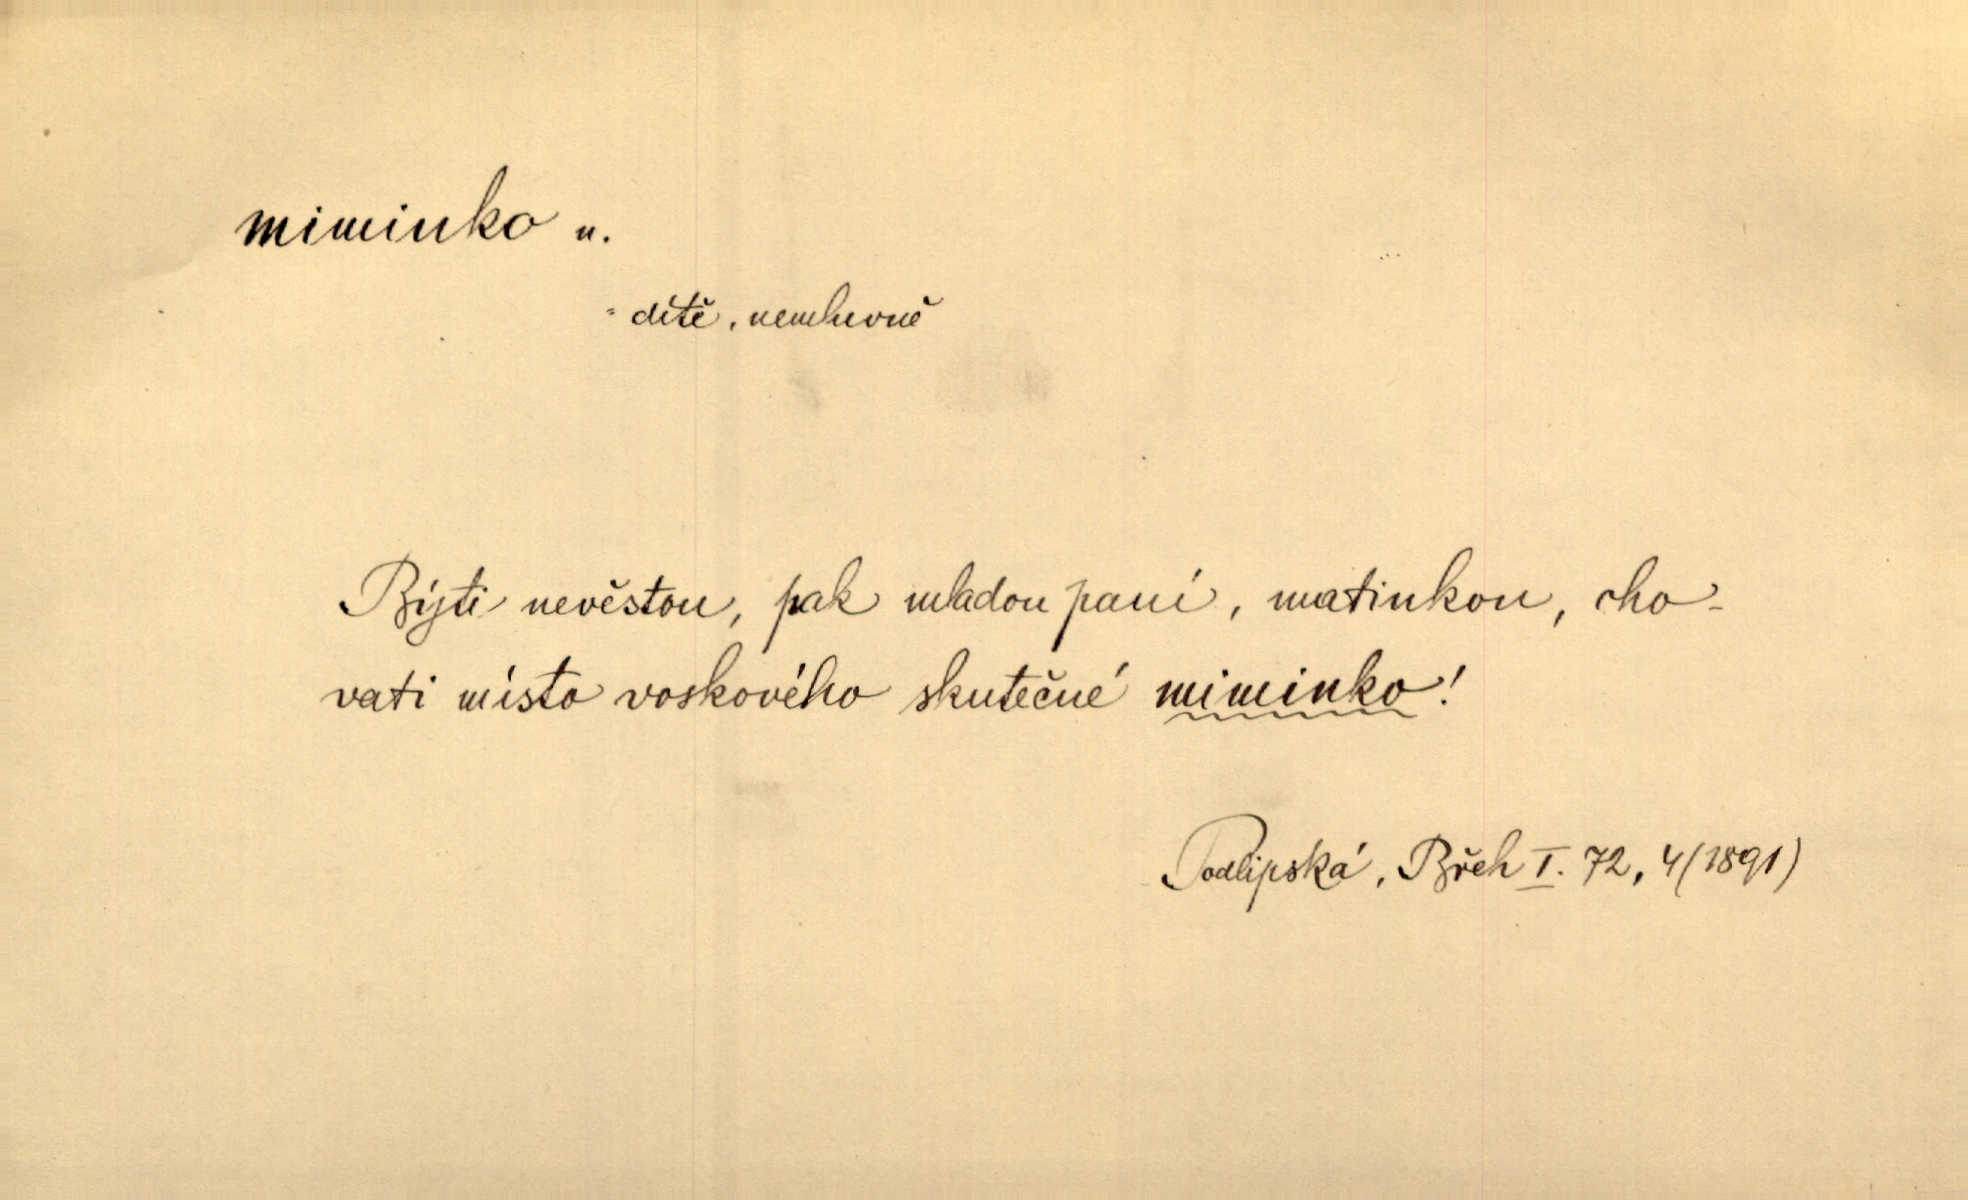 miminko n.
= dítě, nemluvně
Býti nevěstou, pak mladou paní, matinkou, cho-
vati místo voskového skutečné miminko!
Podlipská, Břeh I. 72, 4 (1891)